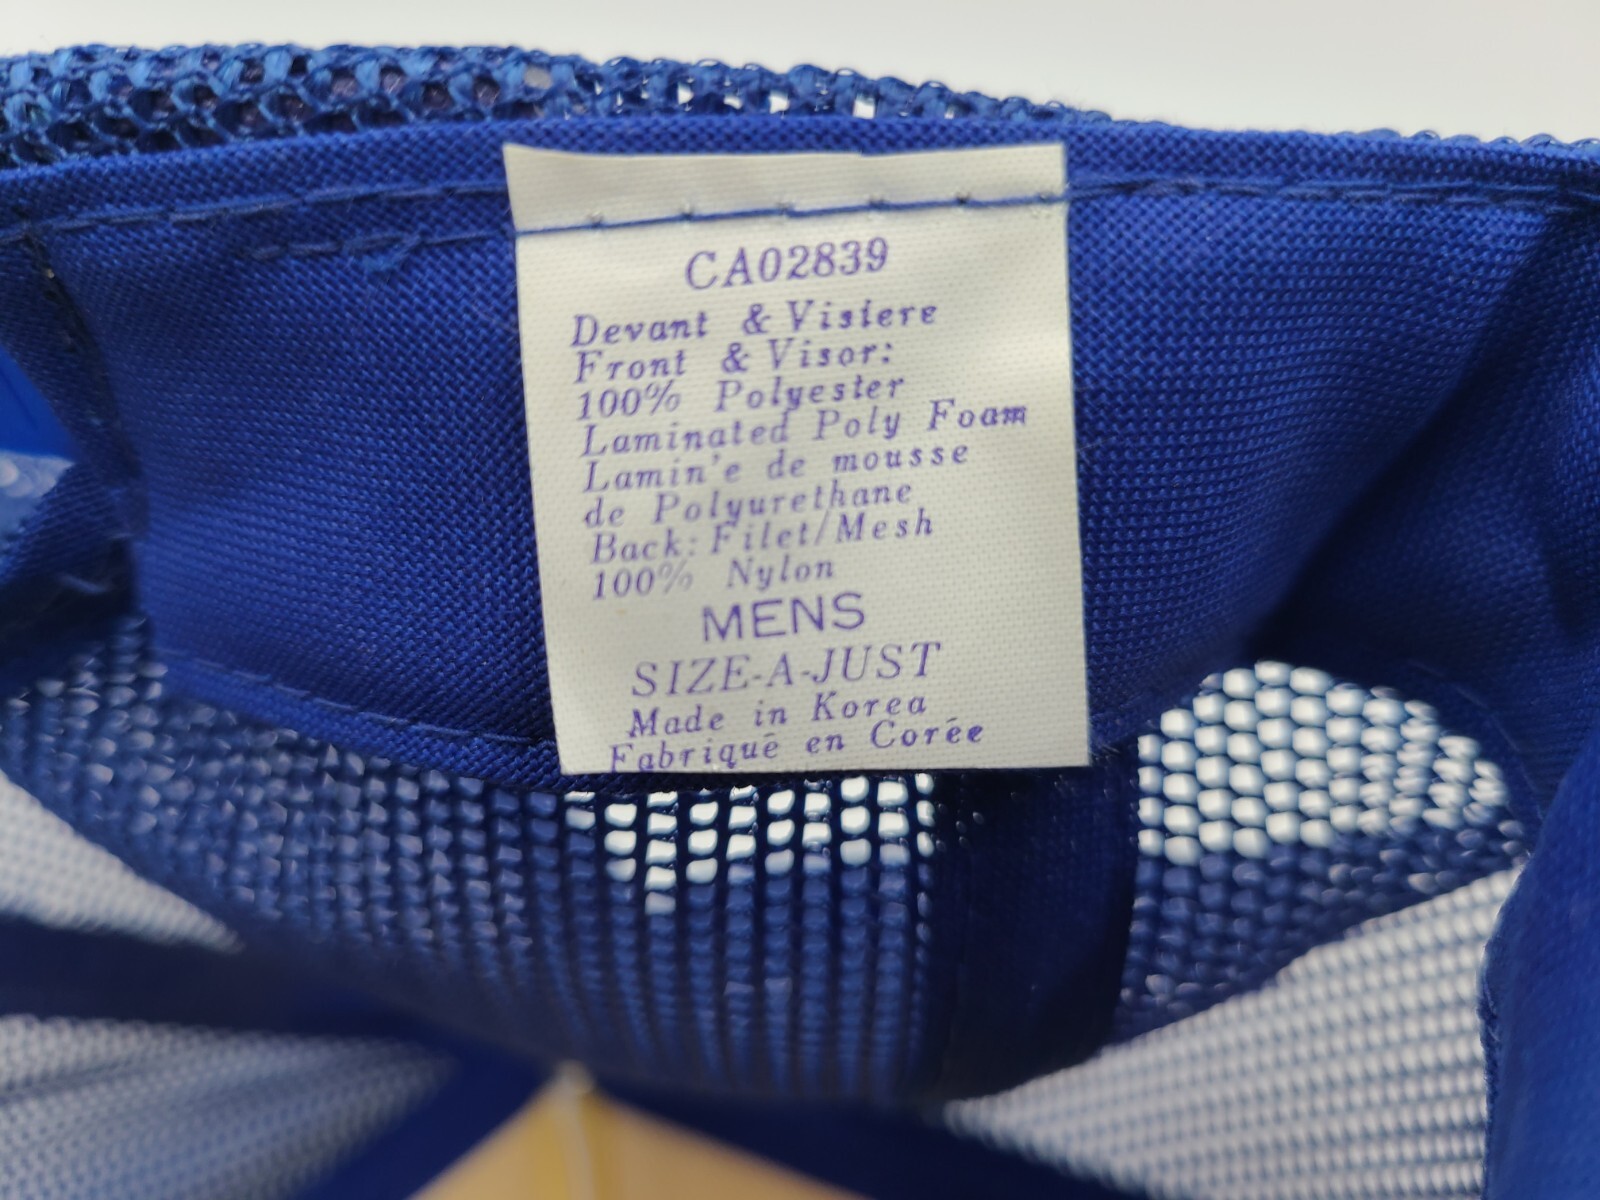 CA02839
Devant & Visiere
Front & Visor:
100% Polyester
Laminated Poly Foam
Lamin'e de mousse
de Polyurethane
Back: Filet/Mesh
100% Nylon
MENS
SIZE-A-JUST
Made in Korea
Fabriquē en Corēe